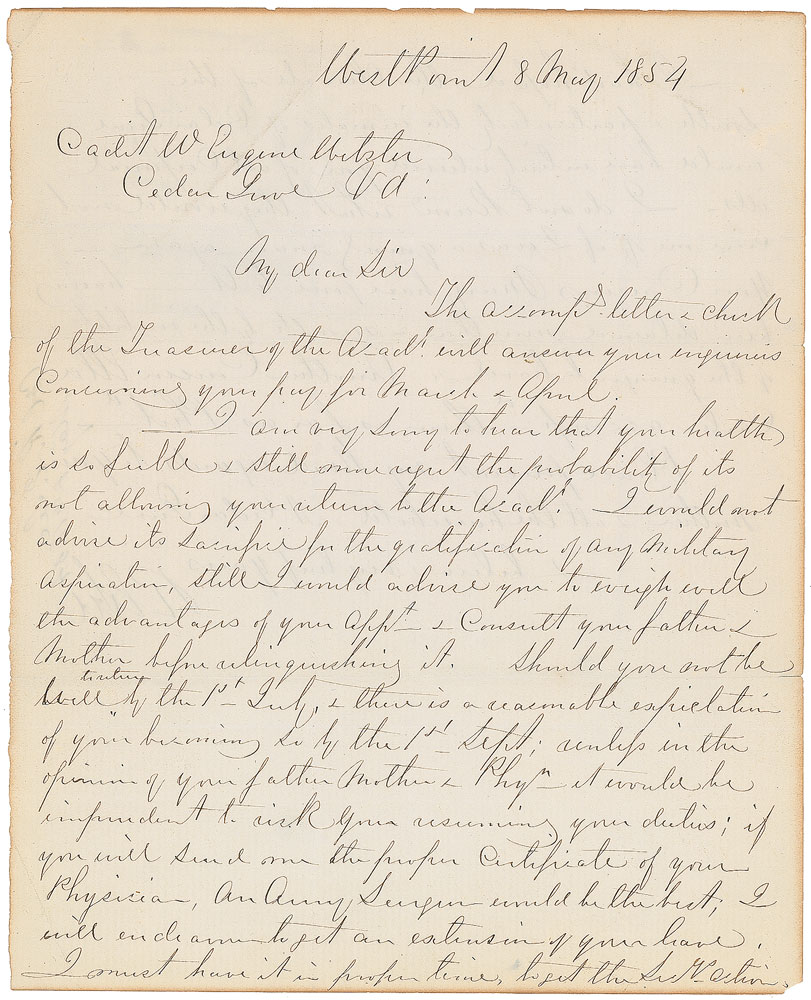 West Point 8 May 1854
Cadet W Eugene Webster
Cedar Grove Va.
My dear Sir
The accompd. letter & check
of the Treasurer of the Acady. will answer your enquiries
Concerning your pay for March & April.
I am very sorry to hear that your health
is so feeble & still more regret the probability of its
not allowing your return to the Acady. I would not
advise its sacrifice for the gratification of any Military
aspiration, still I would advise you to weigh well
the advantages of your Appt. & Consult your father &
Mother before relinquishing it. Should you not be
well by the 1st July, & there is a reasonable expectation
of your becoming so by the 1st Sept; unless in the
opinion of your father Mother & Phyn. it would be
imprudent to risk your resuming your duties; if
you will send me the proper Certificate of your
Physician, An Army Surgeon would be the best, I
will endeavour to get an extension of your leave.
I must have it in proper time, to get the action.